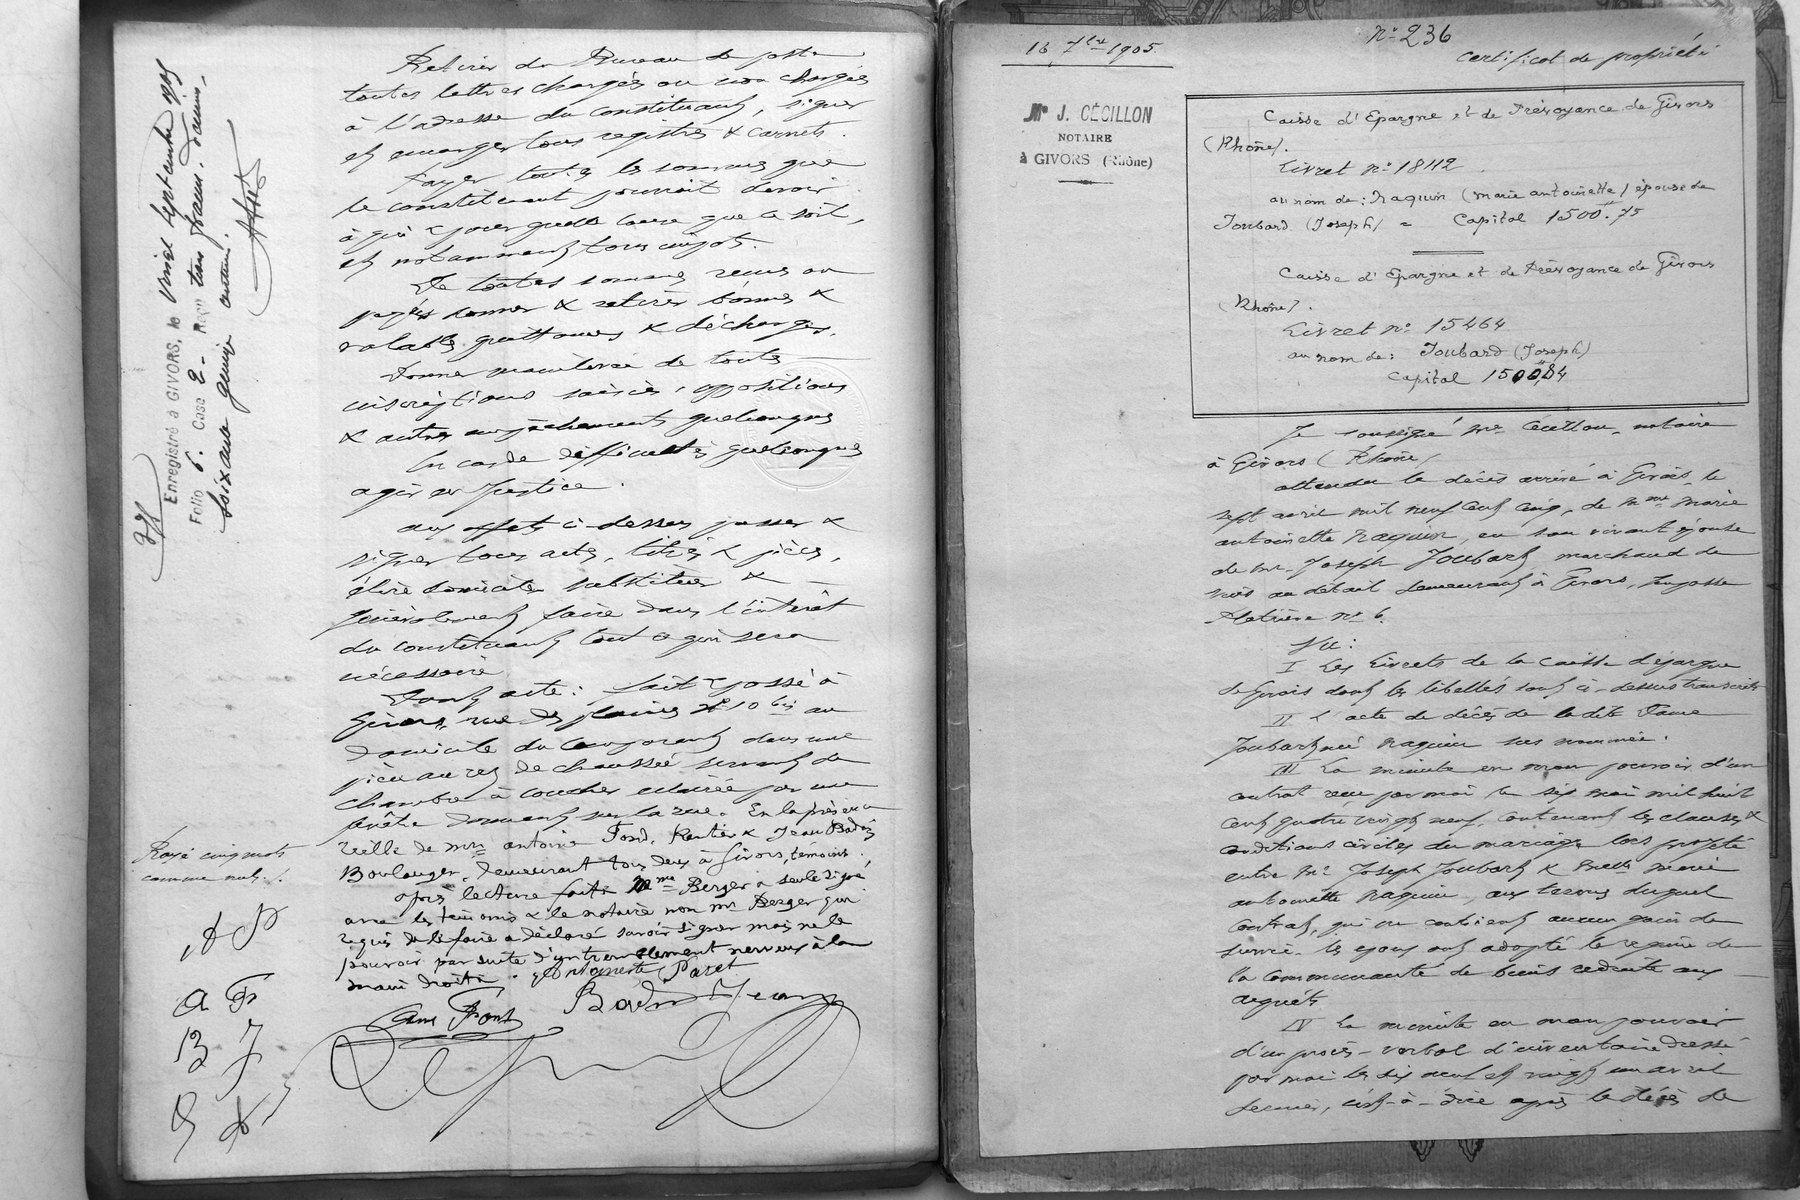 Retirer du Bureau de poste
toutes lettres chargées ou non chargées
à l'adresse du constituant, signer
et émarger tous registres & carnets.
Payer toutes les sommes que
le constituant pourrait devoir
à qui & pour quelle cause que ce soit,
et notamment tous impôts.
De toutes sommes reçues ou
payées donner & retirer bonnes &
valables quittances & décharges.
Donner mainlevée de toutes
inscriptions saisies, oppositions
& autres empêchements quelconques
En cas de difficultés quelconques
agir en Justice.
aux effets ci-dessus passer &
signer tous actes, titres & pièces,
élire domicile substituer &
généralement faire dans l'intérêt
du constituant tout ce qui sera
nécessaire
Dont acte : fait & passé à
Givors, rue des plaines N° 10 bis au
domicile du comparant dans une
pièce au rez de chaussée servant de
chambre à coucher éclairée par une
fenêtre donnant sur la rue. En la présence
réelle de Mrs antoine Fond, Rentier & Jean Badin
Boulanger, demeurant tous deux à Givors, témoins.
après lecture faite Mme Berger a seule signé
avec les témoins & le notaire non mr Berger qui
requis de le faire a déclaré savoir signer mais ne le
pouvoir par suite d'un tremblement nerveux à la
main droite. Antoinette Paret
Badin Jean
Enregistré à GIVORS, le onze septembre 1905
Folio 6. Case 2 - Reçu trois francs, décimes,
soixante quinze centimes.
Rayé cinq mots
comme nuls.
A P
A F
B J
16 7bre 1905
N° 236
Certificat de propriété
Me J. CÉCILLON
NOTAIRE
à GIVORS (Rhône)
Caisse d'Epargne et de Prévoyance de Givors
(Rhône).
Livret n° 18112
au nom de : Naquin (Marie antoinette) épouse de
Joubard (Joseph) = Capital 1500.75
Caisse d'Epargne et de Prévoyance de Givors
(Rhône).
Livret n° 15464
au nom de : Joubard (Joseph)
Capital 1500,84
Je soussigné Me Cécillon, notaire
à Givors (Rhône)
attendu le décès arrivé à Givors, le
sept avril mil neuf cent cinq, de Mme Marie
antoinette Naquin, en son vivant épouse
de Mr Joseph Joubart, marchand de
vins au détail demeurant à Givors, Impasse
n° 6.
Vu :
I Les Livrets de la caisse d'épargne
de Givors dont les libellés sont ci-dessus transcrits
II L'acte de décès de ladite Dame
Joubart née Naquin sus nommée.
III La minute en mon pouvoir d'un
contrat reçu par moi le six mai mil huit
cent quatre vingt neuf, contenant les clauses &
conditions civiles du mariage lors projeté
entre Mr Joseph Joubart & Melle Marie
antoinette Naquin, aux termes duquel
contrat, qui ne contient aucun gain de
survie, les époux ont adopté le régime de
la communauté de biens réduite aux
acquêts
IV La minute en mon pouvoir
d'un procès-verbal d'inventaire dressé
par moi les dix neuf et vingt un avril
dernier, c'est-à-dire après le décès de